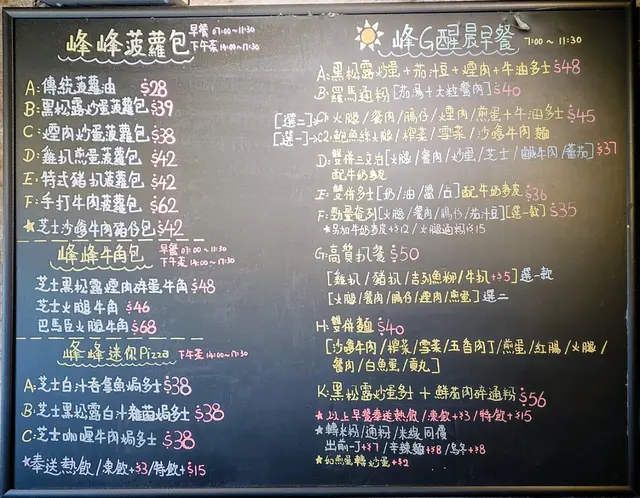 峰峰菠蘿包 早餐 07:00~11:30
下午茶 14:00~17:30
A: 傳統菠蘿油 $28
B: 黑松露炒蛋菠蘿包 $39
C: 煙肉炒蛋菠蘿包 $38
D: 雞扒煎蛋菠蘿包 $42
E: 特式豬扒菠蘿包 $42
F: 手打牛肉菠蘿包 $62
★芝士沙嗲牛肉豬仔包 $42
峰峰牛角包 早餐 07:00~11:30
下午茶 14:00~17:30
芝士黑松露煙肉碎蛋牛角 $48
芝士火腿牛角 $46
巴馬臣火腿牛角 $68
峰峰迷你Pizza 下午茶 14:00~17:30
A: 芝士白汁吞拿魚焗多士 $38
B: 芝士黑松露白汁雜菌焗多士 $38
C: 芝士咖喱牛肉焗多士 $38
★奉送熱飲/凍飲+$3/特飲+$15
峰G醒晨早餐 7:00~11:30
A: 黑松露炒蛋+茄汁豆+煙肉+牛油多士 $48
B: 羅馬通粉[茄湯+大粒餐肉] $40
[選二]→C1: 火腿/餐肉/腸仔/煙肉/煎蛋+牛油多士 $45
[選一]→C2: 鮑魚絲火腿/榨菜/雪菜/沙嗲牛肉麵
D: 雙併三文治[火腿/餐肉/炒蛋/芝士/鹹牛肉/蕃茄] $37
配牛奶麥皮
E: 雙併多士[奶/油/醬/占]配牛奶麥皮 $36
F: 勁量奄列[火腿/餐肉/腸仔/茄汁豆][選一款] $35
★另加牛奶麥皮+$12/火腿通粉+$15
G: 高質扒餐 $50
[雞扒/豬扒/吉列魚柳/牛扒+$5]選一款
[火腿/餐肉/腸仔/煙肉/煎蛋]選二
H: 雙併麵 $40
[沙嗲牛肉/榨菜/雪菜/五香肉丁/煎蛋/紅腸/火腿/
餐肉/白魚蛋/貢丸]
K: 黑松露炒蛋多士+鮮茄肉碎通粉 $56
★以上早餐奉送熱飲/凍飲+$3/特飲+$15
★轉米粉/通粉/米線同價
出前一丁+$7/辛辣麵+$8/烏冬+$8
★如煎蛋轉炒蛋+$2